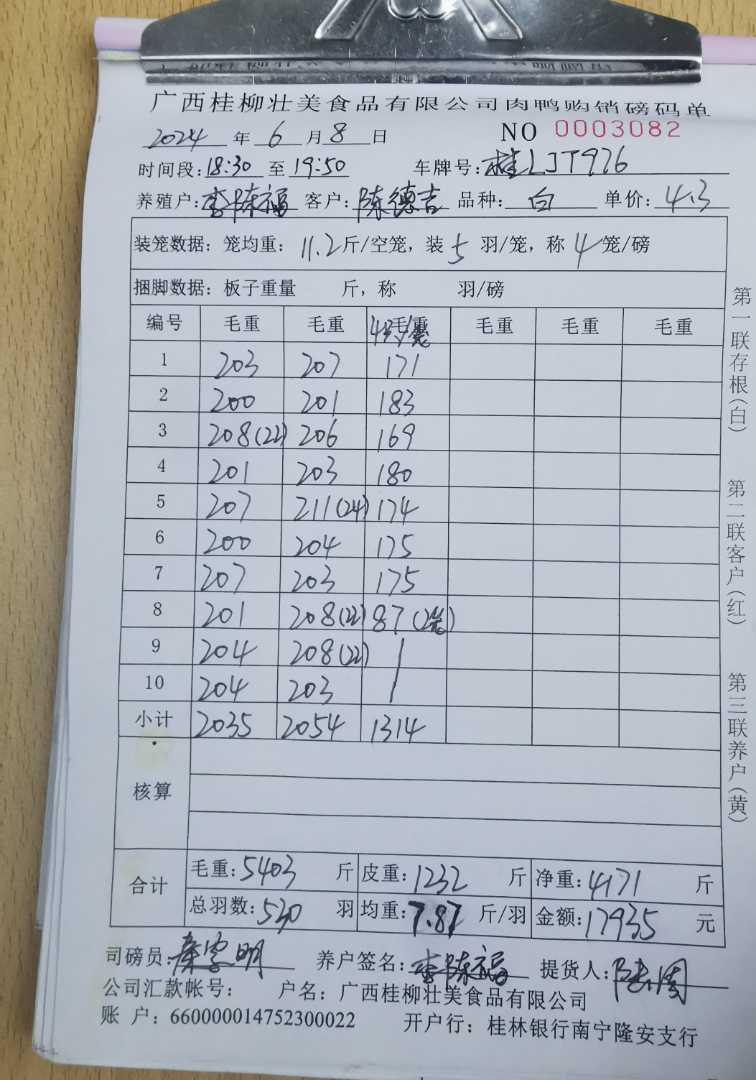 广西桂柳壮美食品有限公司肉鸭购销磅码单
2024 年 6 月 8 日 NO 0003082
时间段: 18:30 至 19:50 车牌号: 桂LJT976
养殖户: 李陈福 客户: 陈德吉 品种: 白 单价: 4.3
装笼数据: 笼均重: 11.2 斤/空笼, 装 5 羽/笼, 称 4 笼/磅
捆脚数据: 板子重量 斤, 称 羽/磅
编号 毛重 毛重 4只/笼 毛重 毛重 毛重 毛重
1 203 207 171
2 200 201 183
3 208(22) 206 169
4 201 203 180
5 207 211(24) 174
6 200 204 175
7 207 203 175
8 201 208(22) 87(2笼)
9 204 208(22) /
10 204 203 /
小计 2035 2054 1314
核算
合计
毛重: 5403 斤 皮重: 1232 斤 净重: 4171 斤
总羽数: 530 羽 均重: 7.87 斤/羽 金额: 17935 元
司磅员: 养户签名: 李陈福 提货人:
公司汇款帐号: 户名: 广西桂柳壮美食品有限公司
账 户: 660000014752300022 开户行: 桂林银行南宁隆安支行
第一联存根(白)
第二联客户(红)
第三联养户(黄)